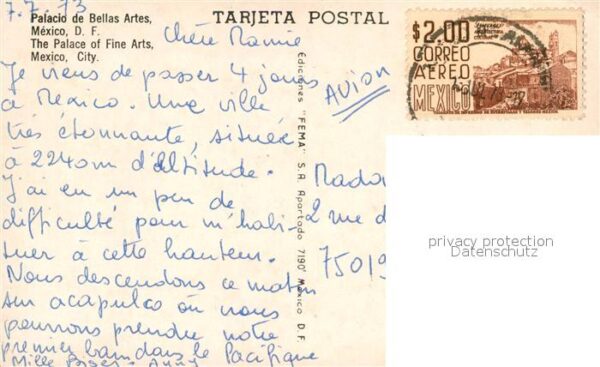 7.7.73
Palacio de Bellas Artes,
México, D. F.
The Palace of Fine Arts,
Mexico, City.
TARJETA POSTAL
Chère Mamie
Je viens de passer 4 jours
à Mexico. Une ville
très étonnante, située
à 2240m d'altitude.
J'ai eu un peu de
difficulté pour m'habi-
tuer à cette hauteur.
Nous descendons ce matin
sur acapulco où nous
pourrons prendre notre
premier bain dans le Pacifique
Mille Bises - Anny
AVION
Ediciones "FEMA" S.A. Apartado 7190 México D.F.
$2.00
CORREO
AEREO
MEXICO
Mado
2 rue d
75019
privacy protection
Datenschutz